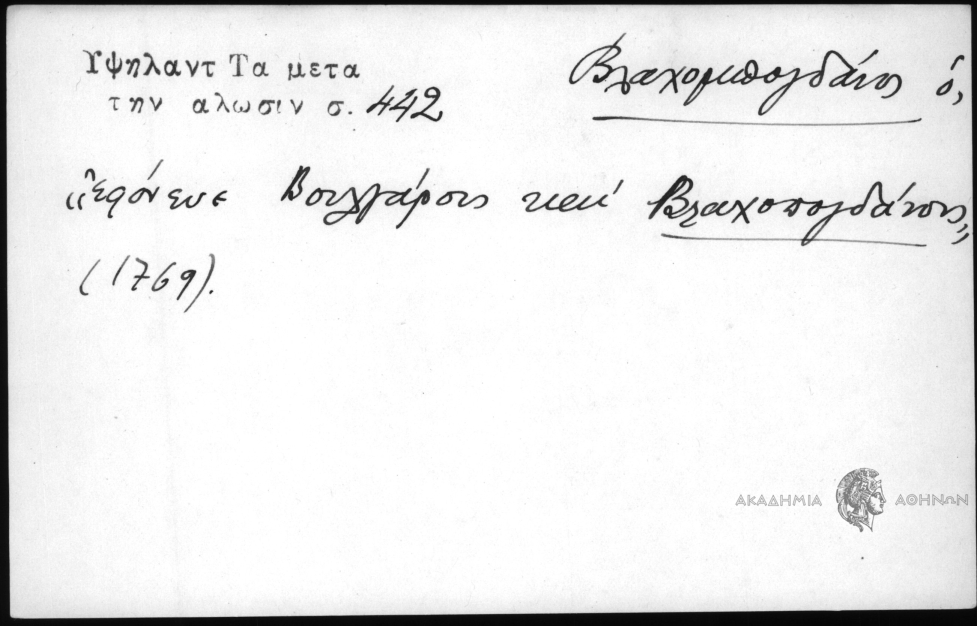 Υψηλαντ Τα μετα
την αλωσιν σ. 442
Βλαχομπογδάνος ὁ,
"ἐφόνευσε Βουλγάρους καί Βλαχοπογδάνους"
(1769).
ΑΚΑΔΗΜΙΑ ΑΘΗΝΩΝ